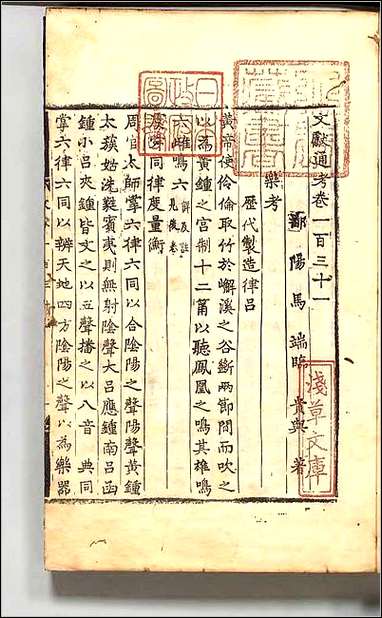 文獻通考卷一百三十一
鄱陽馬端臨貴與著
樂考
歷代製造律呂
黃帝使伶倫取竹於嶰溪之谷斷兩節間而吹之
以為黃鍾之宮制十二筩以聽鳳凰之鳴其雄鳴
六雌鳴六 解及註見後卷
同律度量衡
周官太師掌六律六同以合陰陽之聲陽聲黃鍾
太蔟姑洗蕤賓夷則無射陰聲大呂應鍾南呂函
鍾小呂夾鍾皆文之以五聲播之以八音 典同
掌六律六同以辨天地四方陰陽之聲以為樂器
淺草文庫